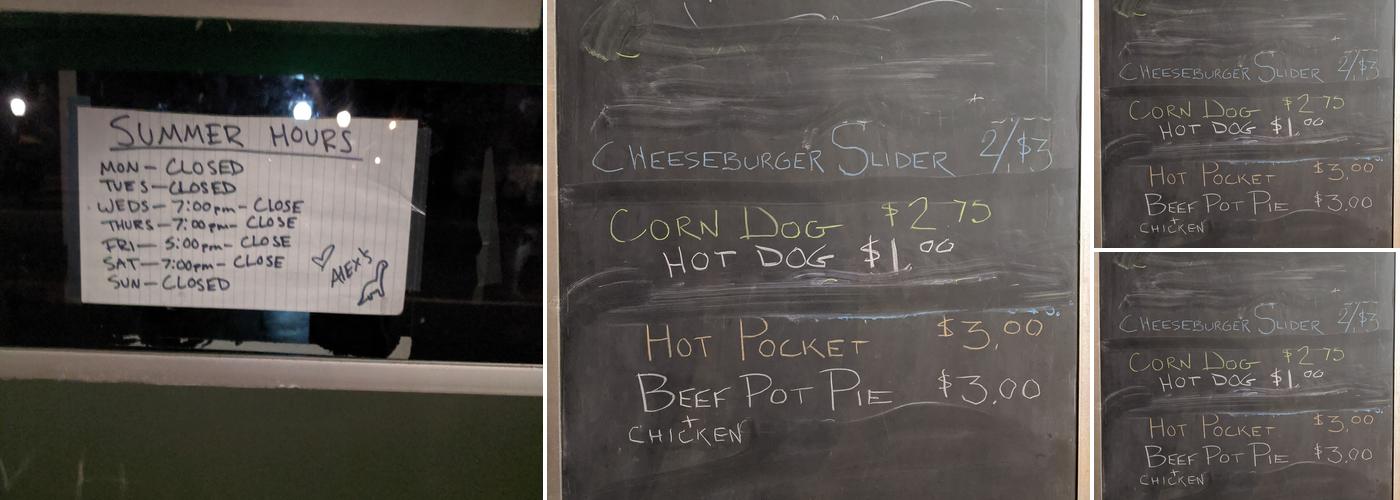 SUMMER HOURS
MON - CLOSED
TUES - CLOSED
WEDS - 7:00pm - CLOSE
THURS - 7:00pm - CLOSE
FRI - 5:00pm - CLOSE
SAT - 7:00pm - CLOSE
SUN - CLOSED
ALEX'S
CHEESEBURGER SLIDER 2/$3
CORN DOG $2.75
HOT DOG $1.00
HOT POCKET $3.00
BEEF POT PIE $3.00
+
CHICKEN
CHEESEBURGER SLIDER 2/$3
CORN DOG $2.75
HOT DOG $1.00
HOT POCKET $3.00
BEEF POT PIE $3.00
+
CHICKEN
CHEESEBURGER SLIDER 2/$3
CORN DOG $2.75
HOT DOG $1.00
HOT POCKET $3.00
BEEF POT PIE $3.00
+
CHICKEN